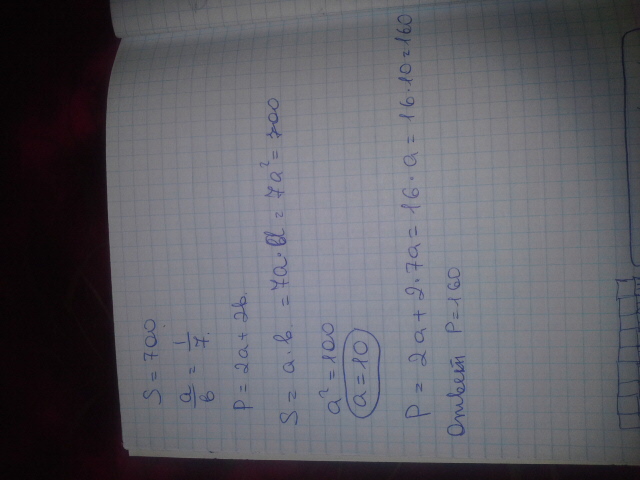 S = 700
a/b = 1/7.
P = 2a + 2b.
S = a · b. = 7a · a = 7a² = 700
a² = 100
a = 10
P = 2a + 2 · 7a = 16 · a = 16 · 10 = 160
Ответ P = 160